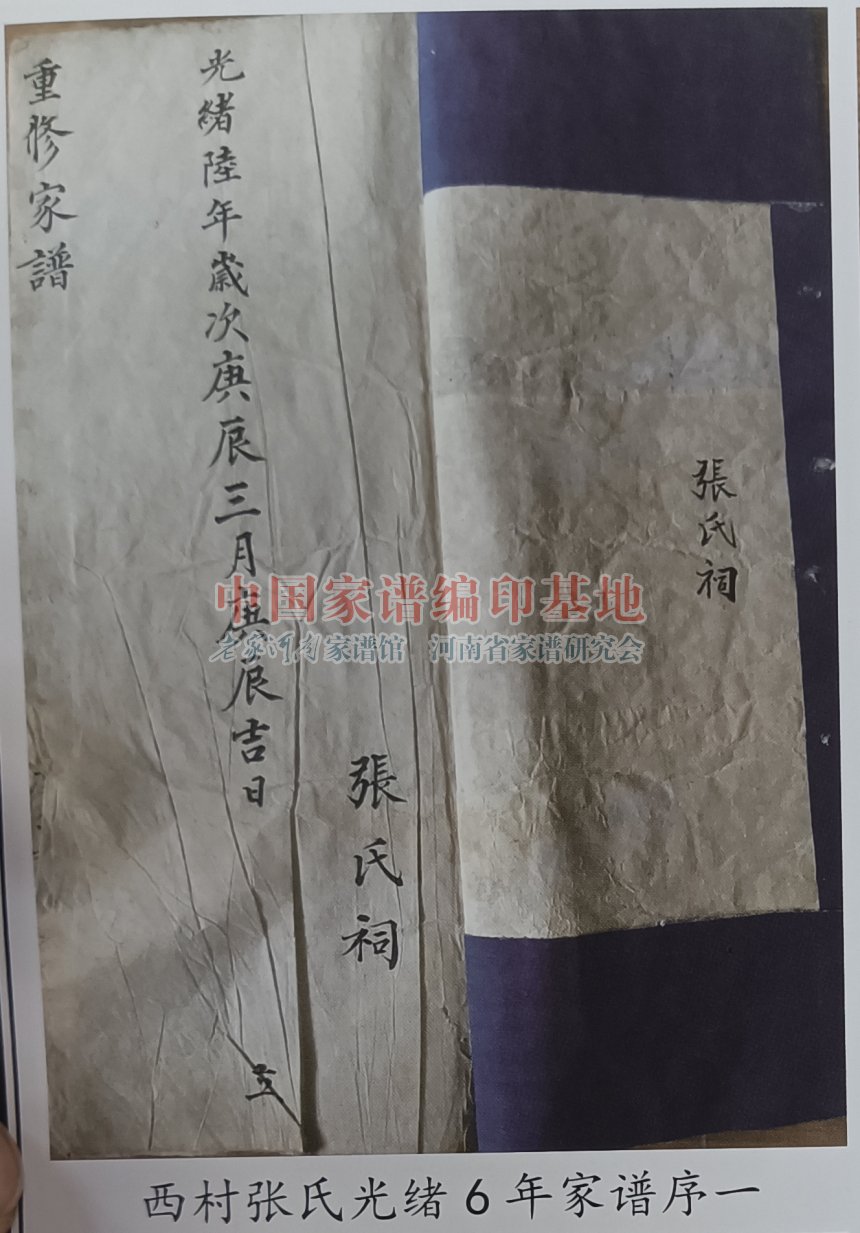 張氏祠
張氏祠
光緒陸年歲次庚辰三月庚辰吉日
立
重修家譜
中国家谱编印基地
老家河南家谱馆 河南省家谱研究会
西村张氏光绪6年家谱序一